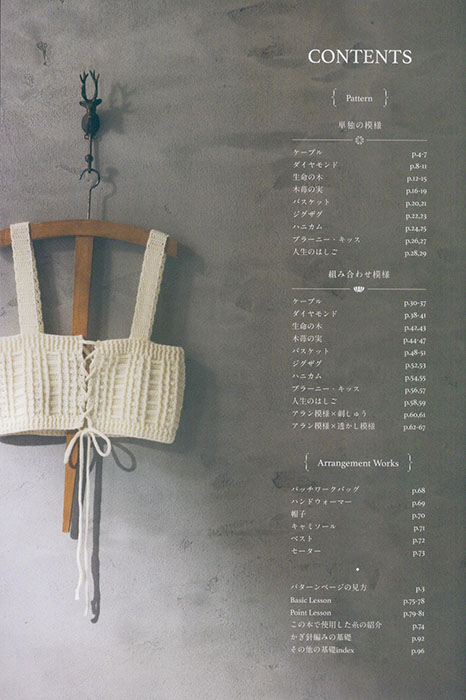 CONTENTS
Pattern
単独の模様
ケーブル p.4-7
ダイヤモンド p.8-11
生命の木 p.12-15
木苺の実 p.16-19
バスケット p.20,21
ジグザグ p.22,23
ハニカム p.24,25
ブラーニー・キッス p.26,27
人生のはしご p.28,29
組み合わせ模様
ケーブル p.30-37
ダイヤモンド p.38-41
生命の木 p.42,43
木苺の実 p.44-47
バスケット p.48-51
ジグザグ p.52,53
ハニカム p.54,55
ブラーニー・キッス p.56,57
人生のはしご p.58,59
アラン模様×刺しゅう p.60,61
アラン模様×透かし模様 p.62-67
Arrangement Works
パッチワークバッグ p.68
ハンドウォーマー p.69
帽子 p.70
キャミソール p.71
ベスト p.72
セーター p.73
パターンページの見方 p.3
Basic Lesson p.75-78
Point Lesson p.79-81
この本で使用した糸の紹介 p.74
かぎ針編みの基礎 p.92
その他の基礎index p.96